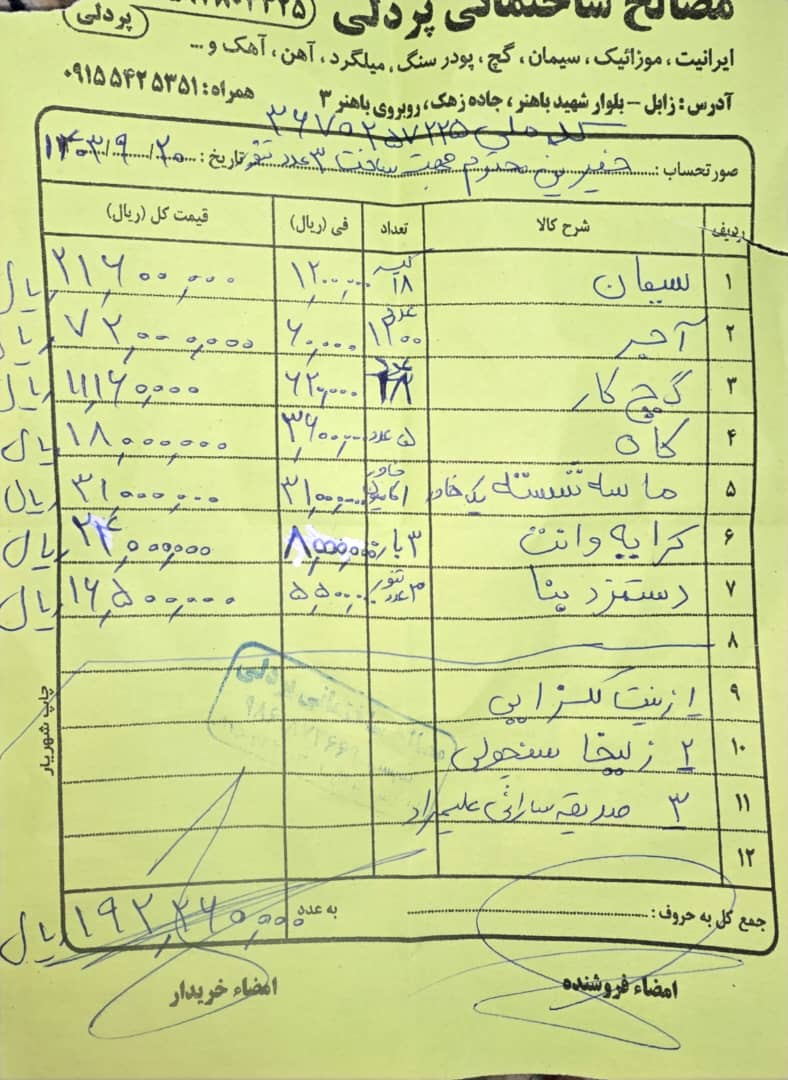 مصالح ساختمانی پردلی
پردلی
ایرانیت، موزائیک، سیمان، گچ، پودر سنگ، میلگرد، آهن، آهک و ...
همراه: ۰۹۱۵۵۴۲۵۳۵۱
آدرس: زابل – بلوار شهید باهنر، جاده زهک، روبروی باهنر ۳
کد ملی ۳۶۷۹۲۵۷۲۲۵
صورتحساب: خیرین محترم جهت ساخت ۳ عدد تنور تاریخ: ۱۴۰۳/۹/۲۰
ردیف شرح کالا تعداد فی (ریال) قیمت کل (ریال)
۱ سیمان ۱۸ کیسه ۱,۲۰۰,۰۰۰ ۲۱,۶۰۰,۰۰۰ ریال
۲ آجر ۱۲۰۰ عدد ۶۰,۰۰۰ ۷۲,۰۰۰,۰۰۰ ریال
۳ گچ کار ۱۸ ۶۲۰,۰۰۰ ۱۱,۱۶۰,۰۰۰ ریال
۴ کاه ۵ عدد ۳,۶۰۰,۰۰۰ ۱۸,۰۰۰,۰۰۰ ریال
۵ ماسه شسته یک خاور ۳۱,۰۰۰,۰۰۰ ۳۱,۰۰۰,۰۰۰ ریال
۶ کرایه وانت ۳ بار ۸,۰۰۰,۰۰۰ ۲۴,۰۰۰,۰۰۰ ریال
۷ دستمزد بنا ۳ عدد تنور ۵,۵۰۰,۰۰۰ ۱۶,۵۰۰,۰۰۰ ریال
۸
۹
۱۰ ۲ زلیخا سنچولی
۱۱ ۳ صدیقه سارانی علیمراد
۱۲
جمع کل به حروف: به عدد ۱۹۲,۲۶۰,۰۰۰ ریال
امضاء فروشنده امضاء خریدار
چاپ شهریار